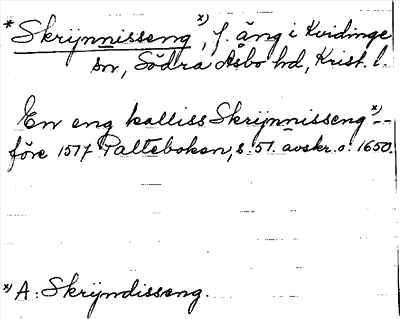 * Skrijnnisseng x), f. äng i Kvidinge
sn, Södra Åsbo hd, Krist. l.
En eng kalliss Skrijnnisseng x) --
före 1577 Palteboken, s. 57. avskr. o. 1650.
x) A: Skrijndisseng.